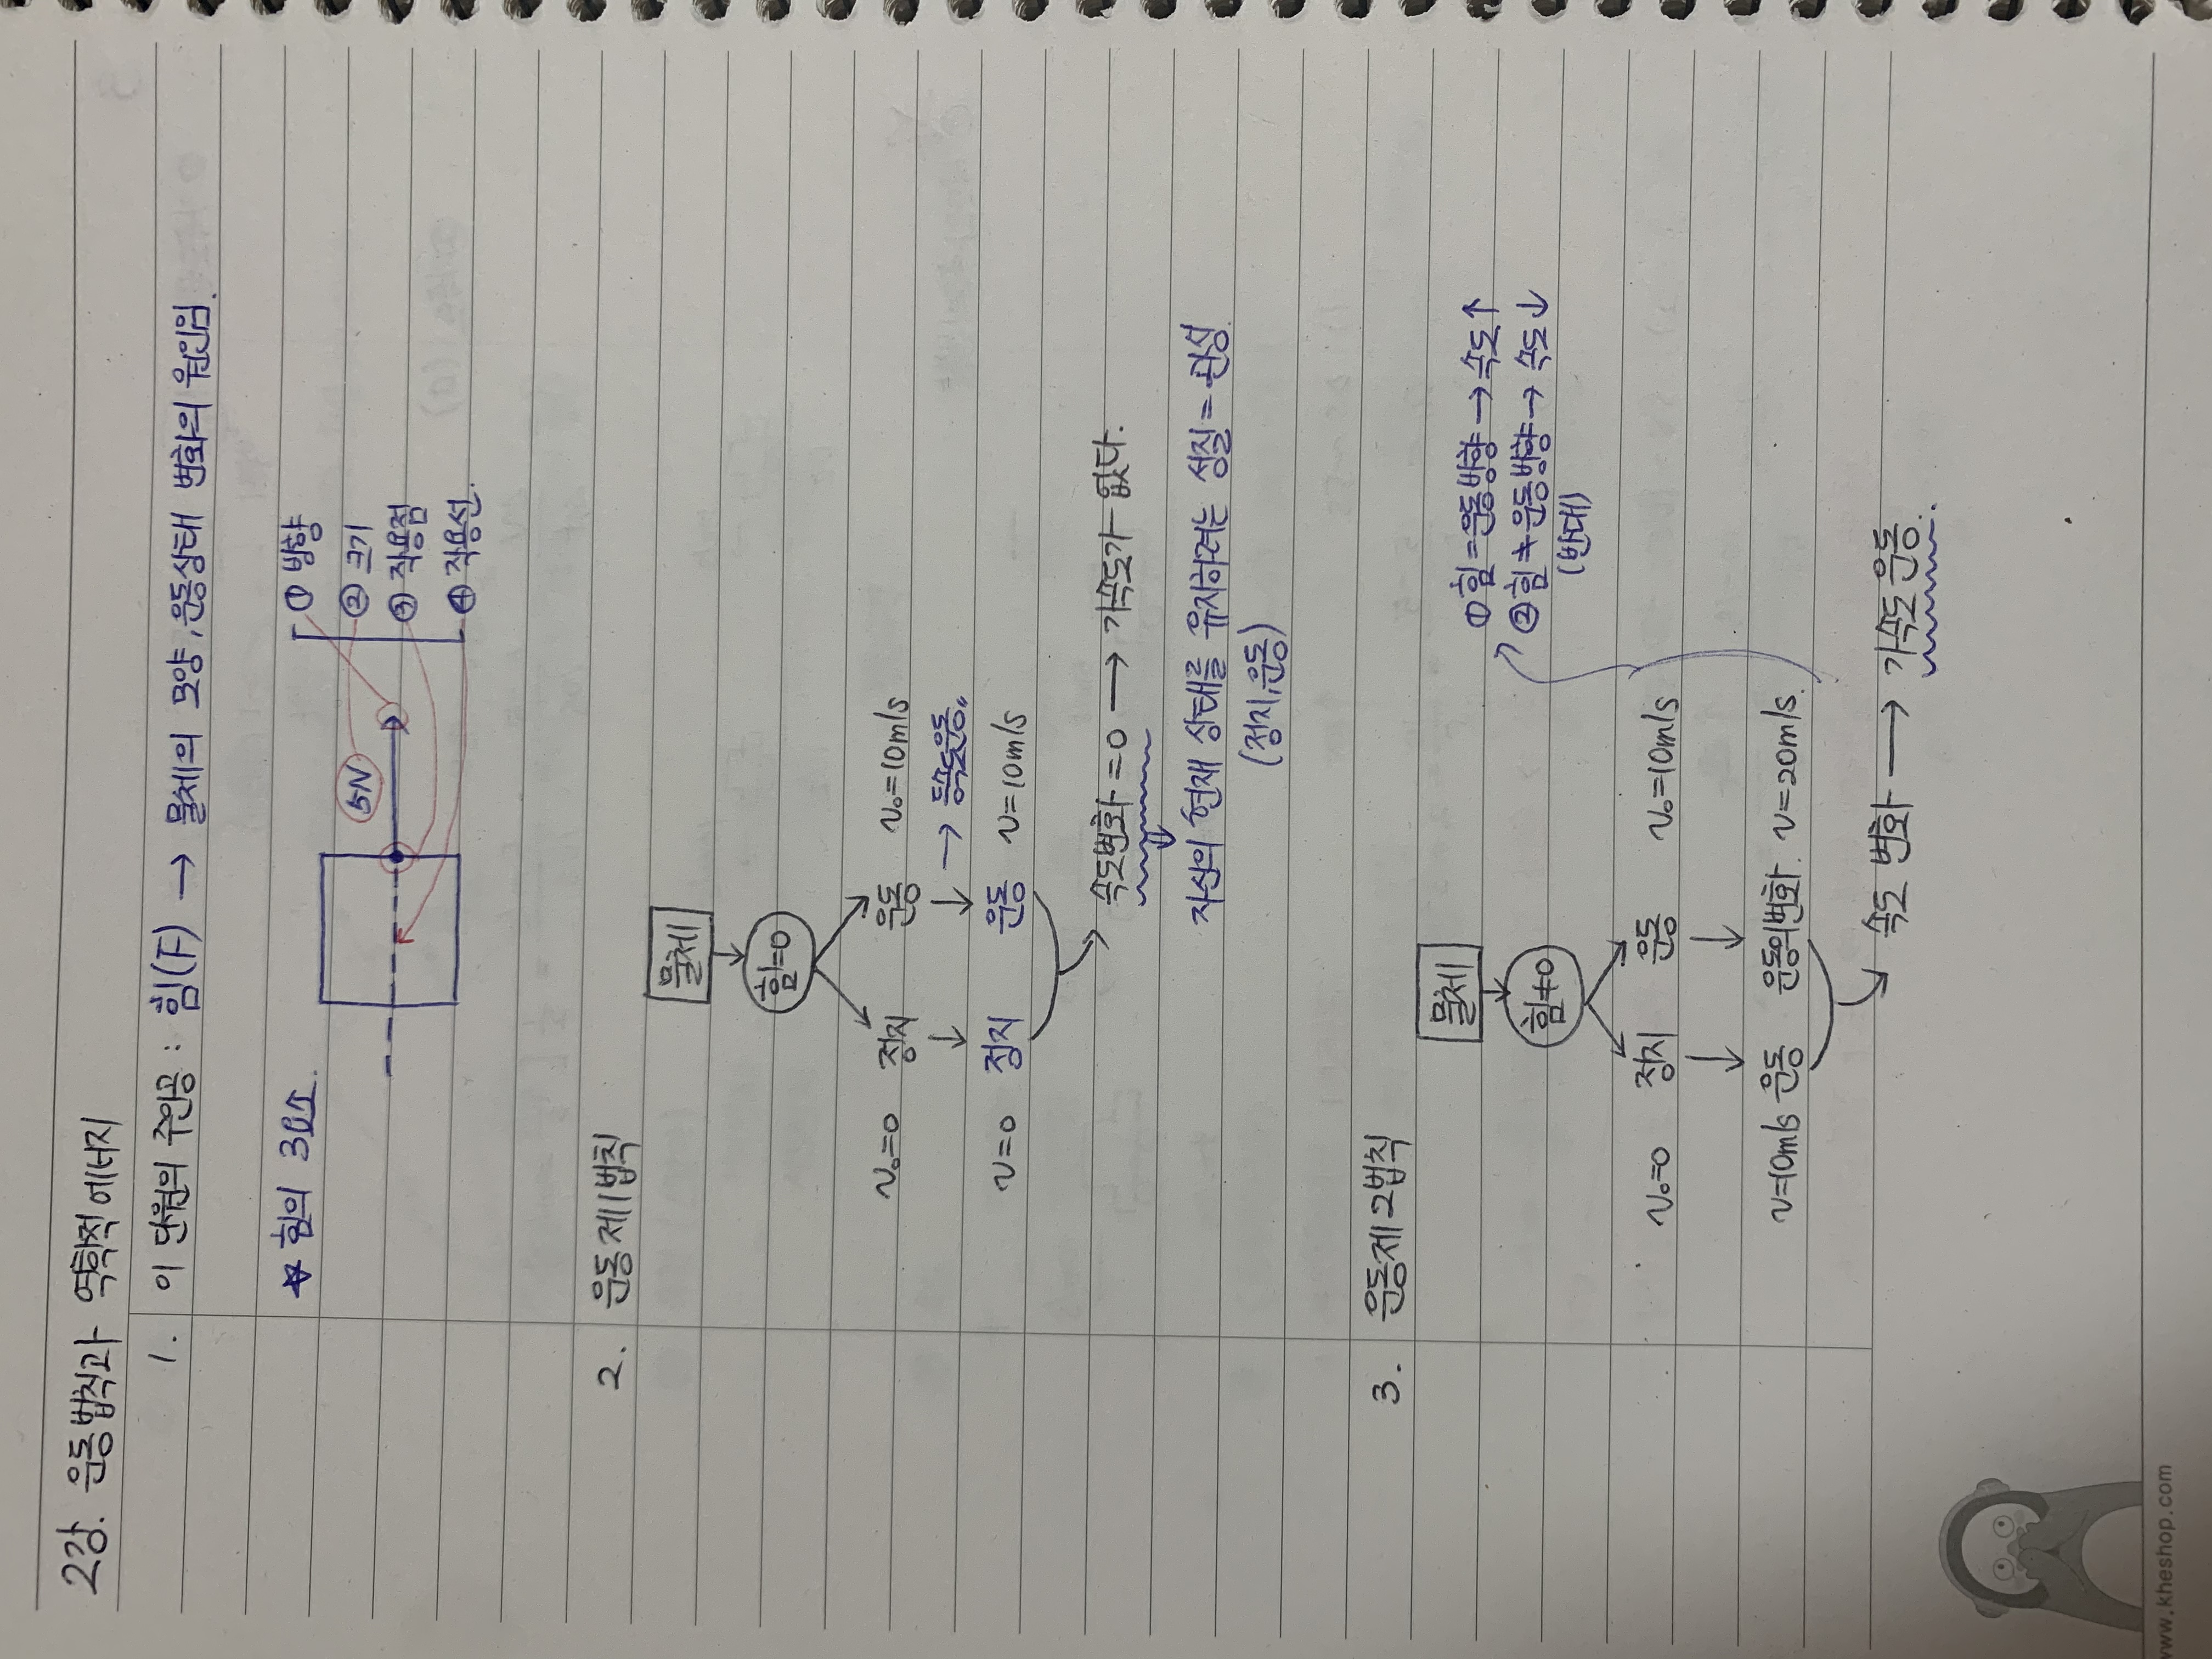 2강. 운동법칙과 역학적에너지
1. 이 단원의 주인공 : 힘(F) → 물체의 모양, 운동상태 변화의 원인임.
☆ 힘의 3요소.
5N
① 방향
② 크기
③ 작용점
④ 작용선.
2. 운동제1법칙
물체
힘=0
v₀=0 정지 운동 v₀=10m/s
↓ ↓ → 등속도운동〃
v=0 정지 운동 v=10m/s
속도변화=0 → 가속도가 없다.
자신의 현재 상태를 유지하려는 성질=관성.
(정지, 운동)
3. 운동제2법칙
물체
힘≠0
① 힘=운동방향 → 속도↑
② 힘≠운동방향 → 속도↓
(반대)
v₀=0 정지 운동 v₀=10m/s
↓ ↓
v=10m/s 운동 운동의변화. v=20m/s.
속도 변화 → 가속도 운동.
www.kheshop.com